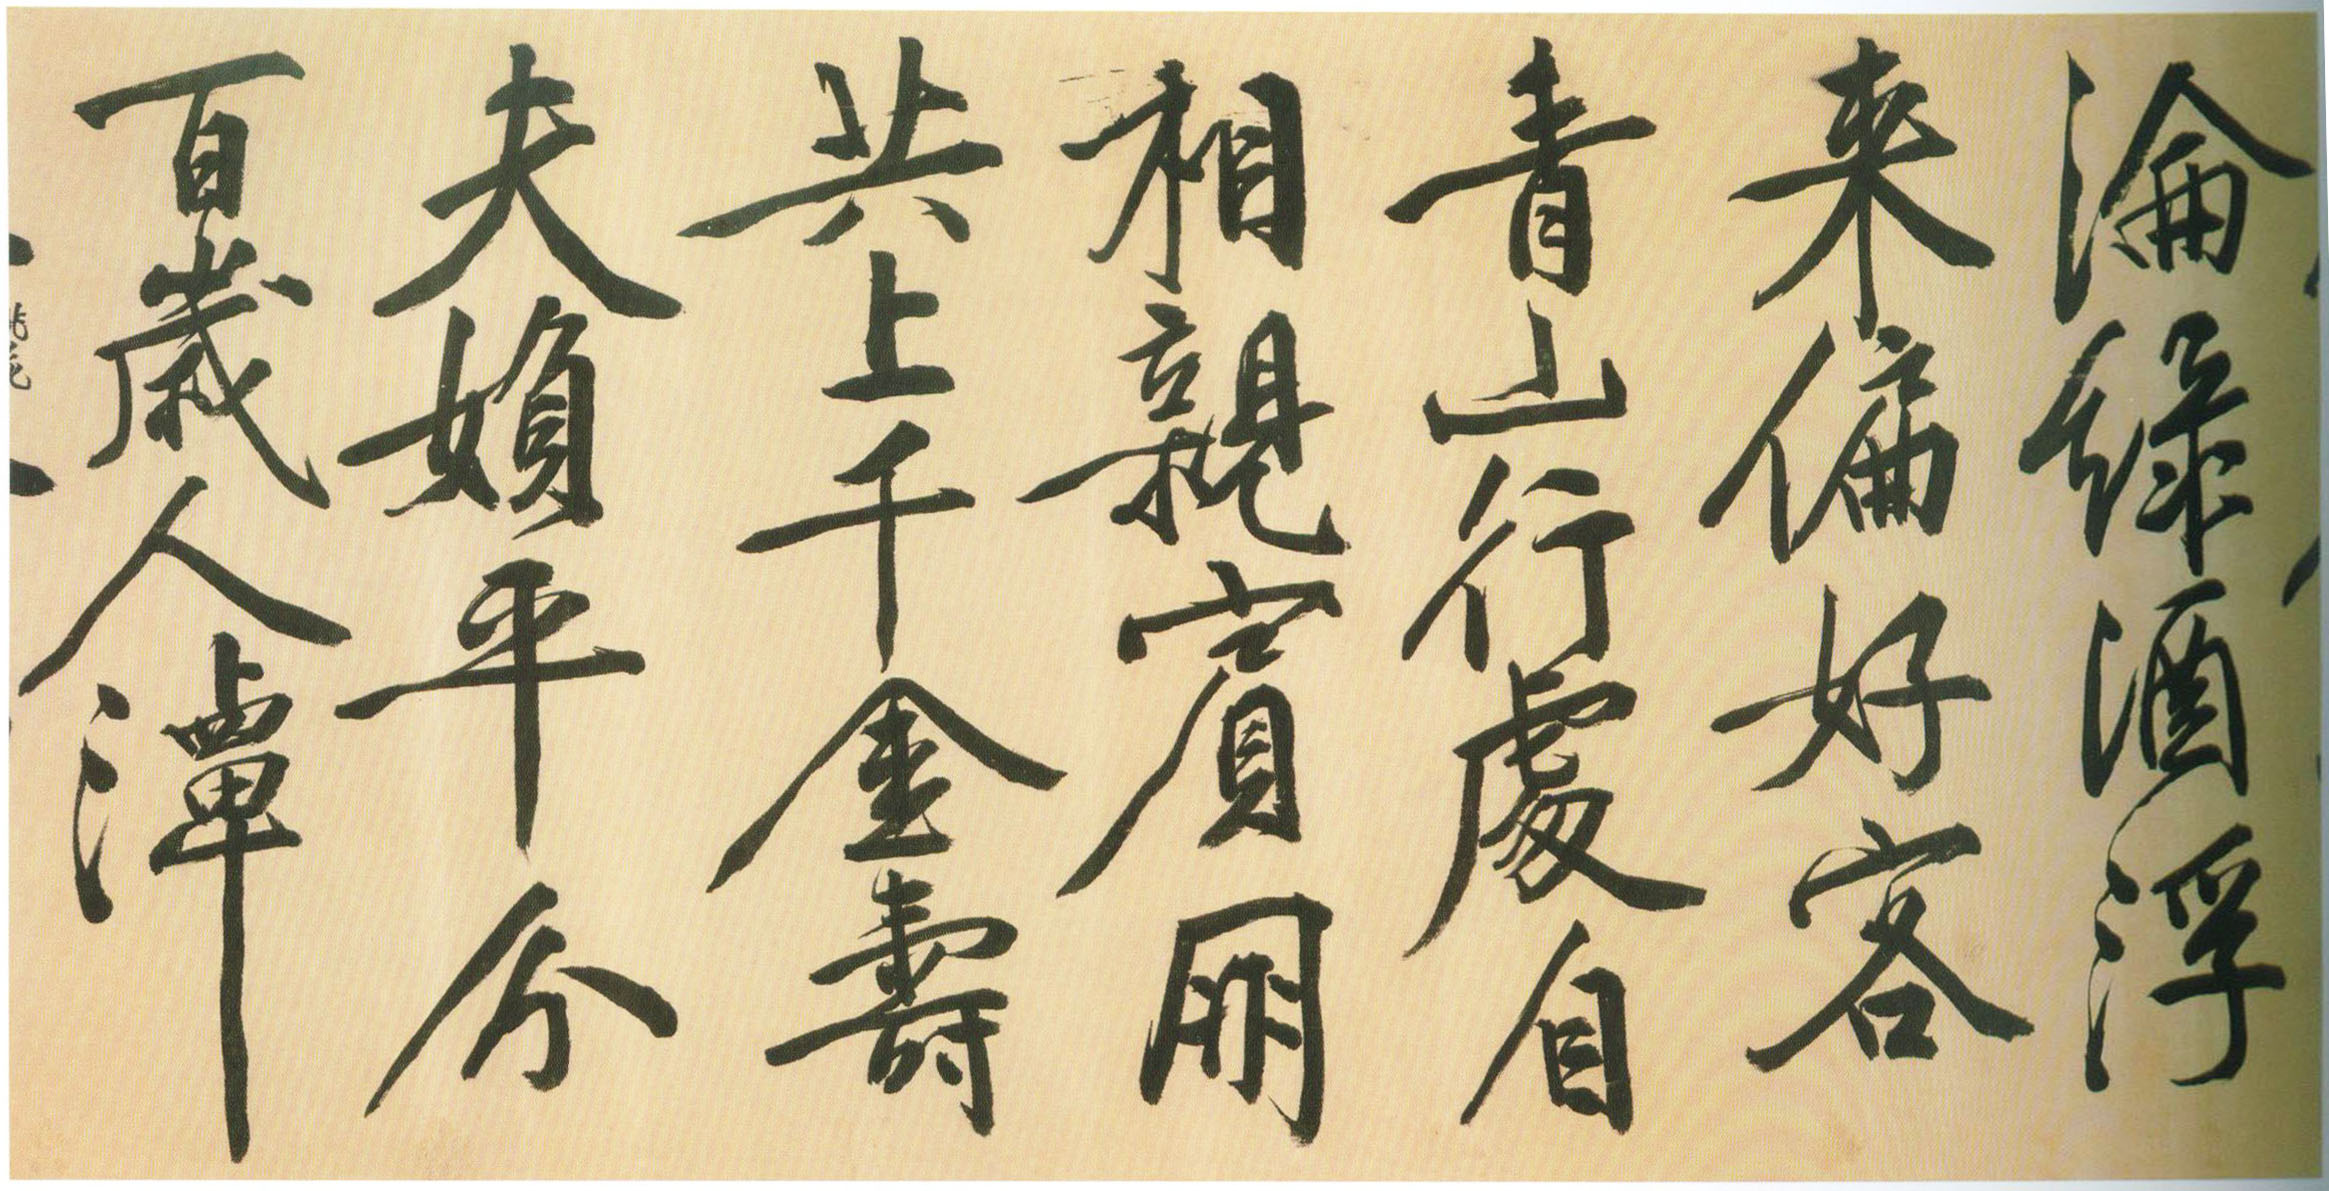 淪綠酒浮
來偏好客
青山行處自
相親賓朋
共上千金壽
夫媍平分
百歲人潭